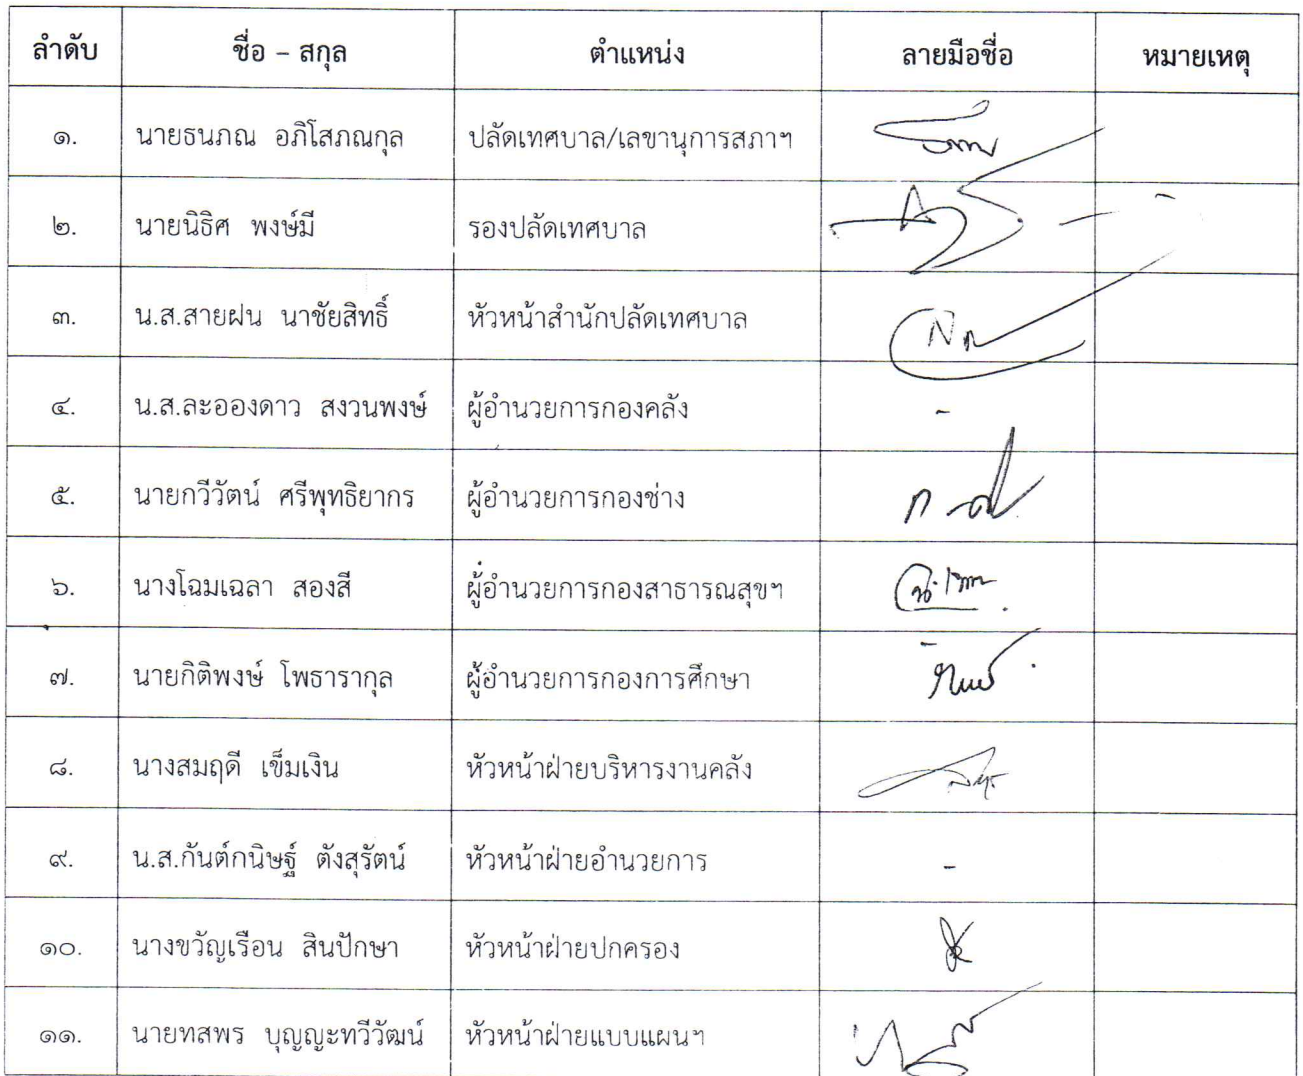 ลำดับ ชื่อ – สกุล ตำแหน่ง ลายมือชื่อ หมายเหตุ
๑. นายธนภณ อภิโสภณกุล ปลัดเทศบาล/เลขานุการสภาฯ
๒. นายนิธิศ พงษ์มี รองปลัดเทศบาล
๓. น.ส.สายฝน นาชัยสิทธิ์ หัวหน้าสำนักปลัดเทศบาล
๔. น.ส.ละอองดาว สงวนพงษ์ ผู้อำนวยการกองคลัง -
๕. นายกวีวัตน์ ศรีพุทธิยากร ผู้อำนวยการกองช่าง
๖. นางโฉมเฉลา สองสี ผู้อำนวยการกองสาธารณสุขฯ
๗. นายกิติพงษ์ โพธารากุล ผู้อำนวยการกองการศึกษา
๘. นางสมฤดี เข็มเงิน หัวหน้าฝ่ายบริหารงานคลัง
๙. น.ส.กันต์กนิษฐ์ ตังสุรัตน์ หัวหน้าฝ่ายอำนวยการ -
๑๐. นางขวัญเรือน สินปักษา หัวหน้าฝ่ายปกครอง
๑๑. นายทสพร บุญญะทวีวัฒน์ หัวหน้าฝ่ายแบบแผนฯ